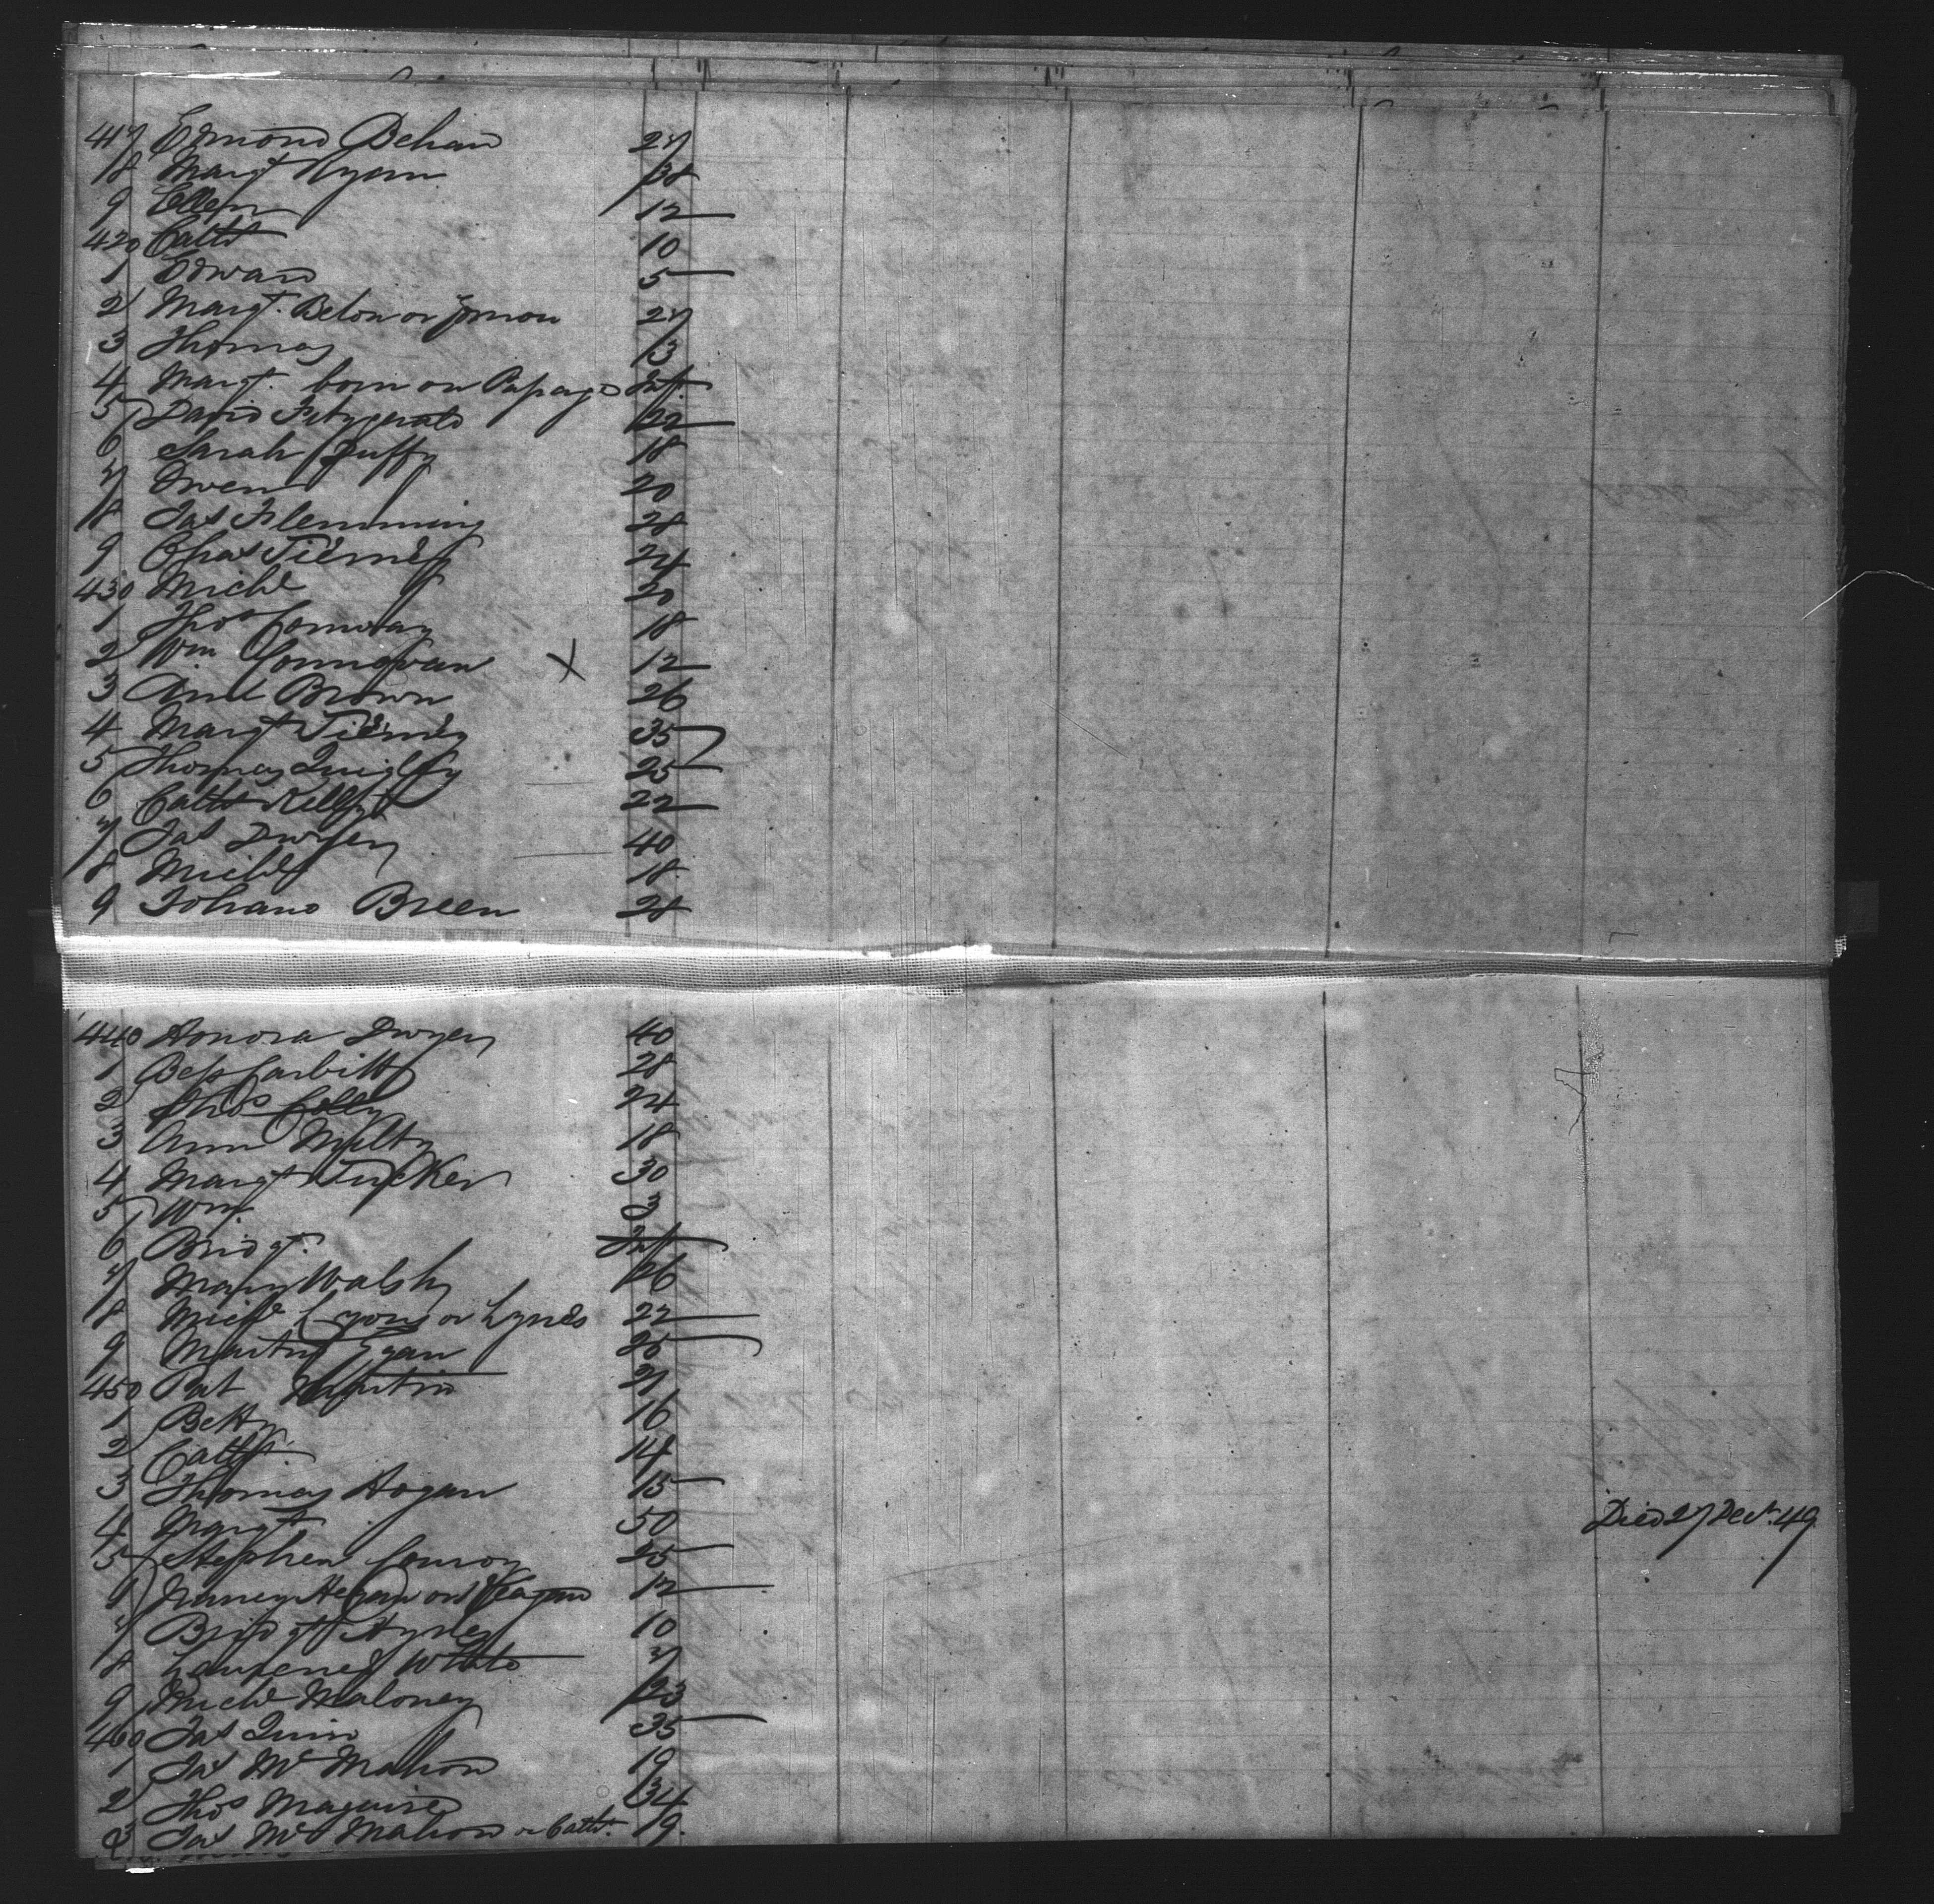 417 Edmond Behan 27
18 Margt Ryan 38
9 Ellen 12
420 Cathe 10
1 Edward 5
2 Margt. Belon or 27
3 Thomas 13
4 Margt. born on Passage Inft.
5 David Fitzgerald 22
6 Sarah Duffy 18
7 Owen 20
8 Jas Flemming 28
9 Chas Tierney 24
430 Michl 20
1 Thos Conway 18
2 Wm Connovan X 12
3 Ann Brown 26
4 Margt Tierney 35
5 Thomas Quigley 25
6 Cathe Kelly 22
7 Jas Dwyer 40
8 Michl 18
9 Johano Breen 28
440 Honora Dwyer 40
1 Bess Carbitt 28
2 Thos Colly 24
3 Ann Multy 18
4 Margt Tucker 30
5 Wm 3
6 Bridgt. Inft
7 Mary Walsh 26
8 Michl Lyons or Lynes 22
9 Martin Egan 25
450 Pat Martin 21
1 Betty 16
2 Cathe. 14
3 Thomas Hogan 15
4 Margt 50 Died 27 Decr. 49
5 Stephen Conroy 25
6 Nancy Hegan or Keagan 12
7 Bridgt Hynes 10
8 Lawrence White 7
9 Michl Maloney 23
460 Jas Quin 35
1 Jas Mc Mahon 19
2 Thos Maguire 34
3 Jas Mc Mahon or Cathe. 19.